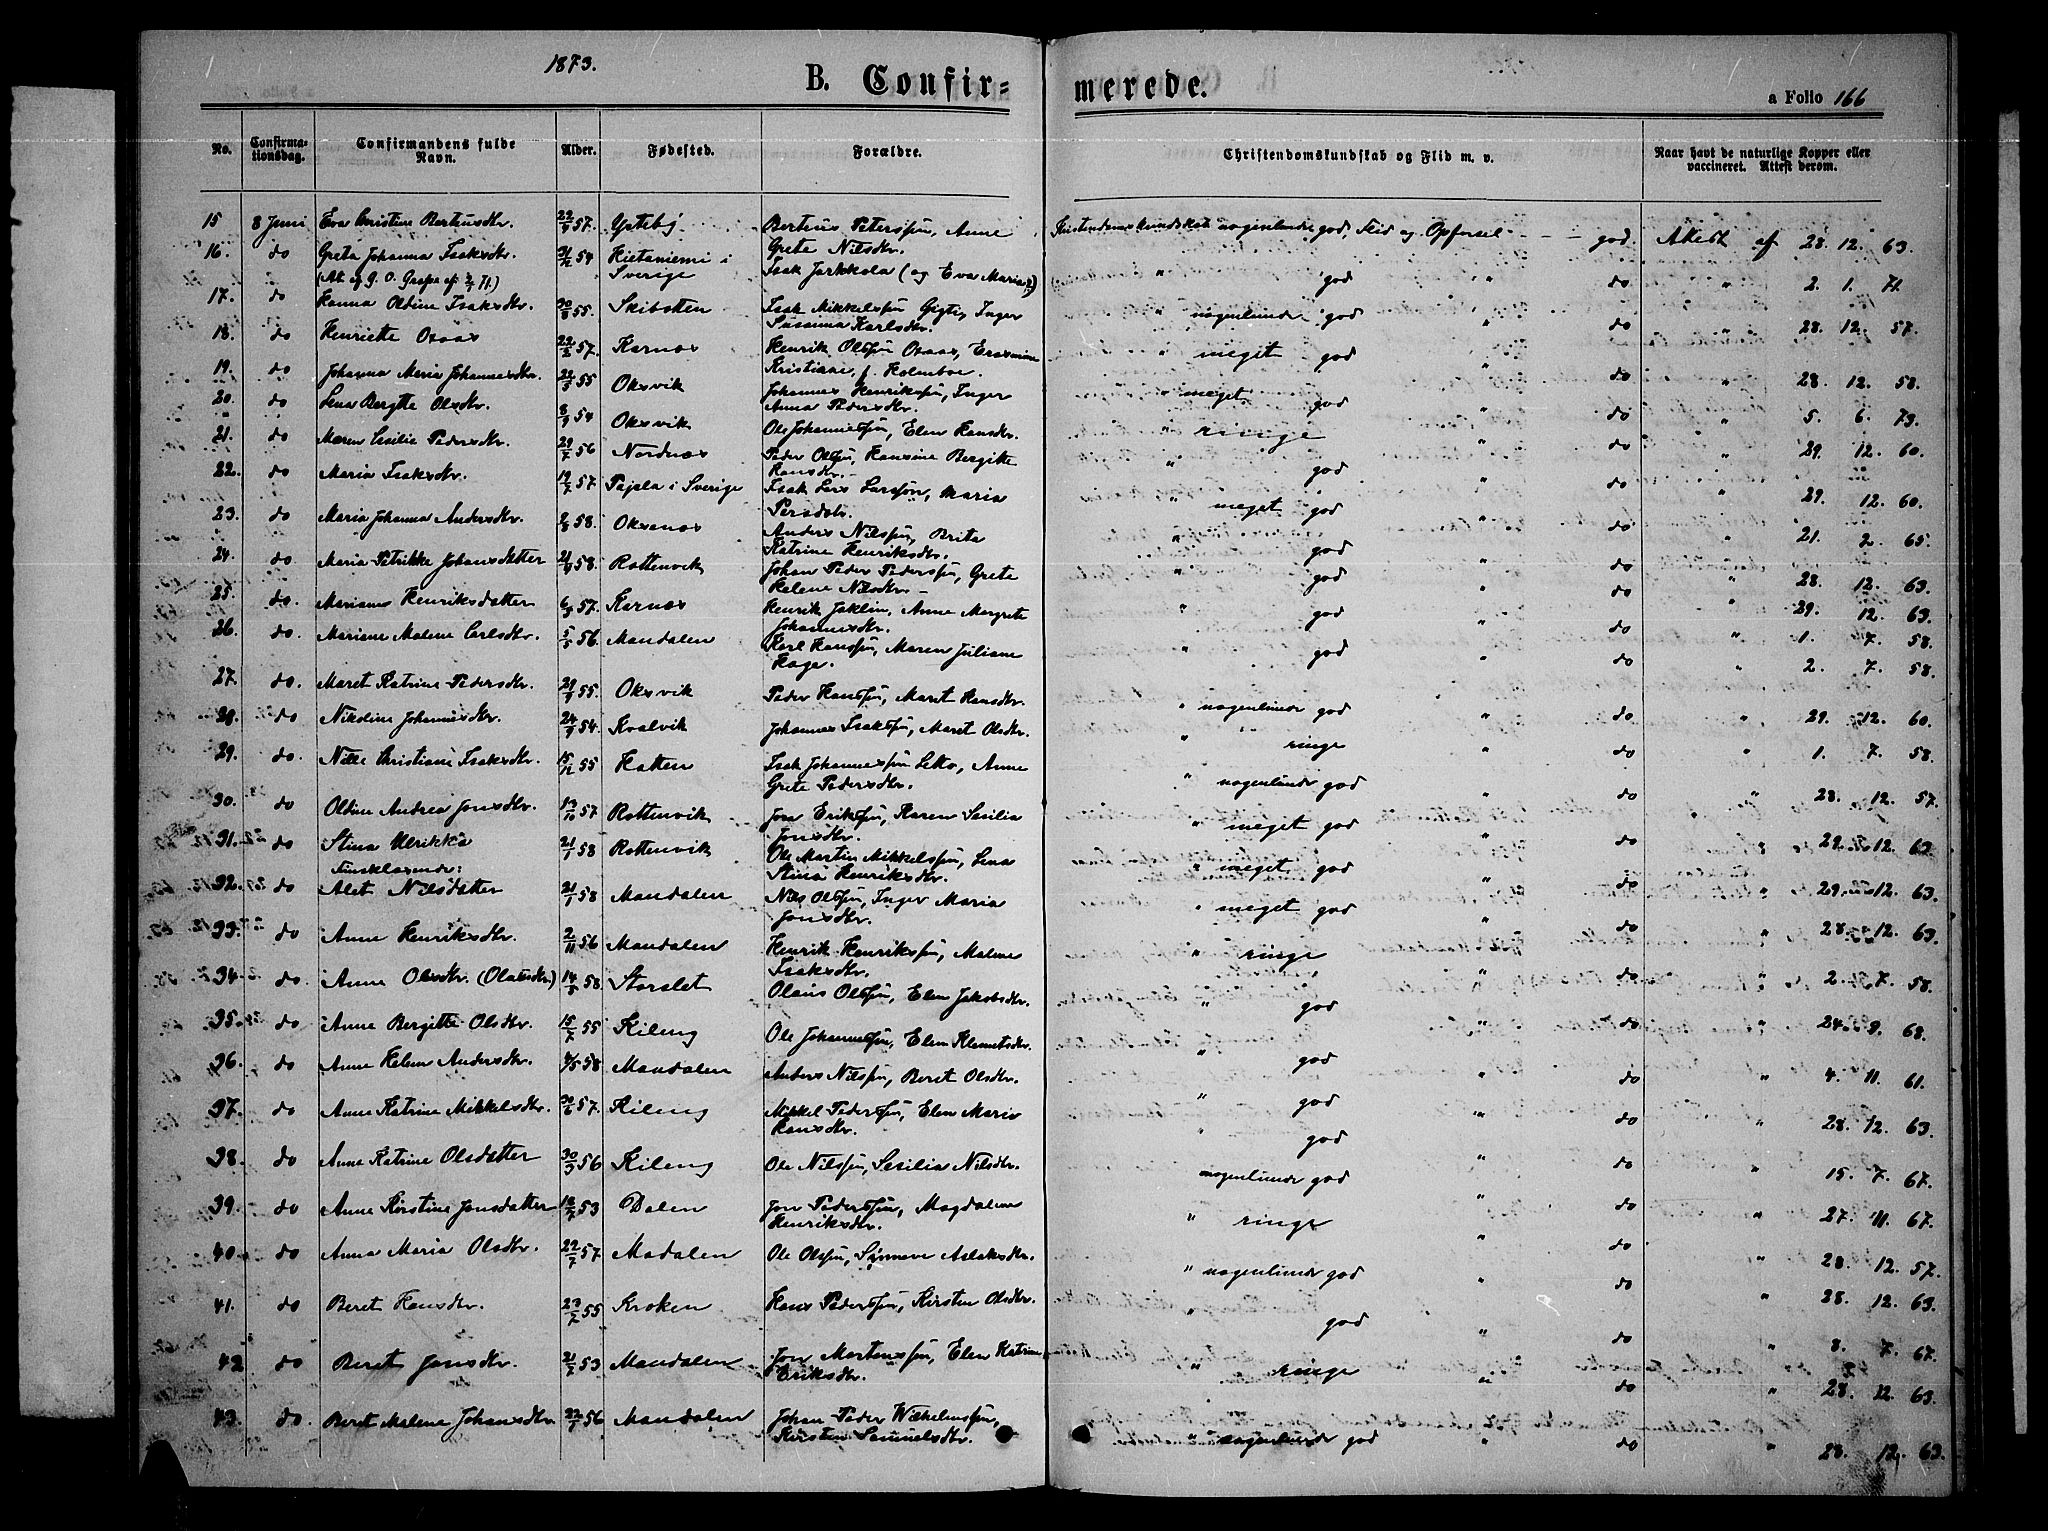 1873.
B. Confir=
merede.
a Folio 166
No.
Confirma-
tionsdag.
Confirmandens fulde
Navn.
Alder.
Fødested.
Forældre.
Christendomskundskab og Flid m. v.
Naar havt de naturlige Kopper eller
vaccineret. Attest derom.
15 8 Juni Eva Christine Bertusdtr. 57. Ystebÿ Bertus Peterssøn, Anne
Grete Nilsdtr.
Kristendomskundskab nogenlunde god, Flid og Opførsel - - - god Attest af 28. 12. 63.
16. do Greta Johanna Isaksdtr. 31/12 54 Hietaniemi i
Sverige
(At. af G. O. Grape af 2/1 71.)
Isak Jarkkola (og Eva Maria?)
" god " do " 2. 1. 71.
17. do Hanna Oldine Isaksdtr. 30/8 55. Skibotten Isak Mikkelssøn Gigti, Inger
Susanna Karlsdtr.
" nogenlunde god " do " 28. 12. 57.
18. do Henriette Oxaas 22/2 57. Karnæs Henrik Olssøn Oxaas, Erasmine
Kristiane, f. Holmboe.
" meget god " do " 28. 12. 58.
19. do Johanna Maria Johannesdtr. 55 Oksvik Johannes Henrikssøn, Inger
Anna Pedersdtr.
" meget god " do " 5. 6. 73.
20. do Lena Bergtte Olsdtr. 54 Oksvik Ole Johannessøn, Elen Hansdtr.
" ringe " do " 29. 12. 60.
21. do Maren Cesilie Pedersdtr. 29/7 56 Nordnæs Peder Olssøn, Hansine Bergitte
Hansdtr.
" god " do " 29. 12. 60.
22. do Maria Isaksdtr. 19/7 57. Pajala i Sverige Isak Lars Larssøn, Maria
Persdotr.
" meget god " do " 21. 2. 65.
23. do Maria Johanna Andersdtr. 58. Oksnæs Anders Nilssøn, Brita
Katrine Henriksdtr.
" god " do " 28. 12. 63.
24. do. Maria Petrikke Johansdatter 58. Rottenvik Johan Peder Pederssøn, Grete
Helene Nilsdtr.
" god " do " 29. 12. 63.
25. do. Mariane Henriksdatter 57. Karnæs Henrik Jaklin, Anne Margrete
Johannesdtr.
" god " do " 1. 7. 58.
26. do. Mariane Malene Carlsdtr. 5/5 56. Mandalen Karl Hanssøn, Maren Juliane
Hage.
" god " do " 2. 7. 58.
27. do. Maret Katrine Pedersdtr. 55. Oksvik Peder Hanssøn, Maret Hansdtr.
" nogenlunde god " do " 29. 12. 60.
28. do Nikoline Johannesdtr. 54. Kvalvik Johannes Isakssøn, Maret Olsdtr.
" ringe " do " 1. 7. 58.
29. do. Nille Christiane Isaksdtr. 15/12 55 Hatten Isak Johannessøn Letto, Anne
Grete Pedersdtr.
" nogenlunde god " do " 28. 12. 57.
30. do Oldine Andrea Jonsdtr. 13/10 57 Rottenvik Jon Erikssøn, Karen Sesilia
Jonsdtr.
" meget god " do " 29. 12. 63.
31. do Stina Ulrikka 21/1 58 Rottenvik Ole Martin Mikkelssøn, Lena
Stina Henriksdtr.
" meget god " do " 29. 12. 63.
Finsklæsende:
32. do Alet Nilsdatter 21/1 58 Mandalen Nils Olssøn, Inger Maria
Jonsdtr.
" meget god " do " 28. 12. 63.
33. do Anne Henriksdtr. 2/11 56 Mandalen Henrik Henrikssøn, Malene
Isaksdtr.
" ringe " do " 2. 7. 58.
34 do. Anne Olsdtr. (Olausdtr) 58 Storslet Olaus Olssøn, Elen Jakobsdtr.
" god " do " 24. 9. 68.
35. do Anne Bergitte Olsdtr. 15/7 55 Kileng Ole Johannessøn, Elen Klemetsdtr.
" god " do " 4. 11. 61.
36. do Anne Helene Andersdtr. 4/5 58 Mandalen Anders Nilssøn, Beret Olsdtr.
" god " do " 28. 12. 63.
37. do Anne Katrine Mikkelsdtr. 30/6 57. Kileng Mikkel Pederssøn, Elen Maria
Hansdtr.
" god " do " 15. 7. 67.
38. do Anne Katrine Olsdatter 56 Kileng Ole Nilssøn, Sesilia Nilsdtr.
nogenlunde god " do " 27. 11. 67.
39. do Anne Kirstine Jonsdatter 18/7 53 Dalen Jon Pederssøn, Magdalene
Henriksdtr.
" ringe " do " 28. 12. 57.
40. do Anna Maria Olsdtr. 22/7 57. Madalen Ole Olssøn, Synneve Aslaksdtr.
" nogenlunde god " do " 28. 12. 63.
41. do Beret Hansdtr. 55 Kroken Hans Pederssøn, Kirsten Olsdtr.
" god " do " 8. 7. 67.
42 do Beret Jonsdtr. 21/7 53 Mandalen Jon Mortenssøn, Elen Katrine
Eriksdtr.
" ringe " do " 28. 12. 63.
43. do. Beret Malene Johansdtr. 22/7 56 Mandalen Johan Peder Wilhelmssøn,
Kirsten Samuelsdtr.
" nogenlunde god " do " 28. 12. 63.